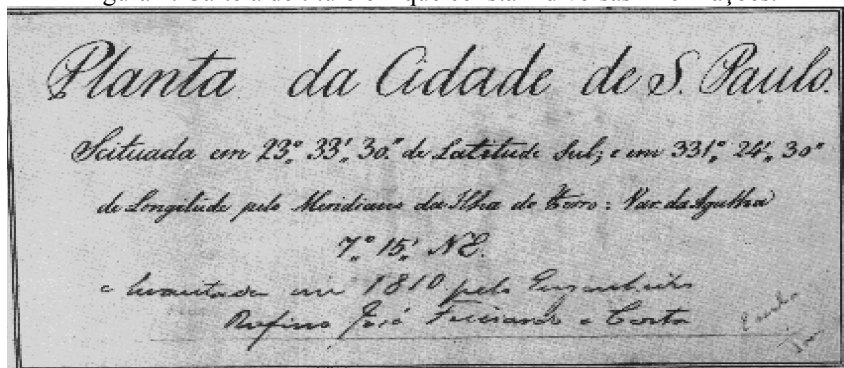 Planta da Cidade de S. Paulo.
Scituada em 23º, 33', 30." de Latitude Sul; e em 331º, 24', 30"
de Longitude pelo Meridiano da Ilha do Ferro: Var. da Agulha
7º, 15', NE.
e levantada em 1810 pelo Engenheiro
Rufino José Felizardo e Costa